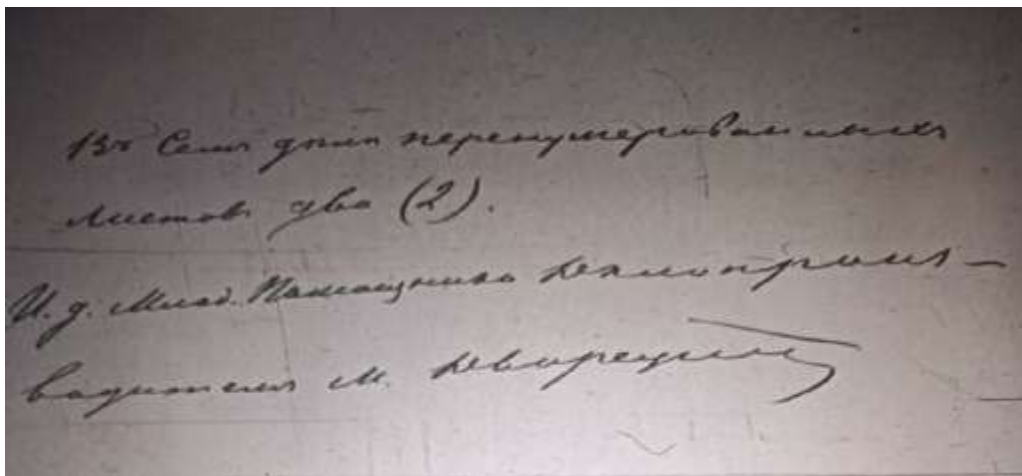 Въ семъ дѣлѣ перенумерованныхъ
листовъ два (2).
И. д. Млад. Помощника Дѣлопроиз-
водителя М. Дворецкій